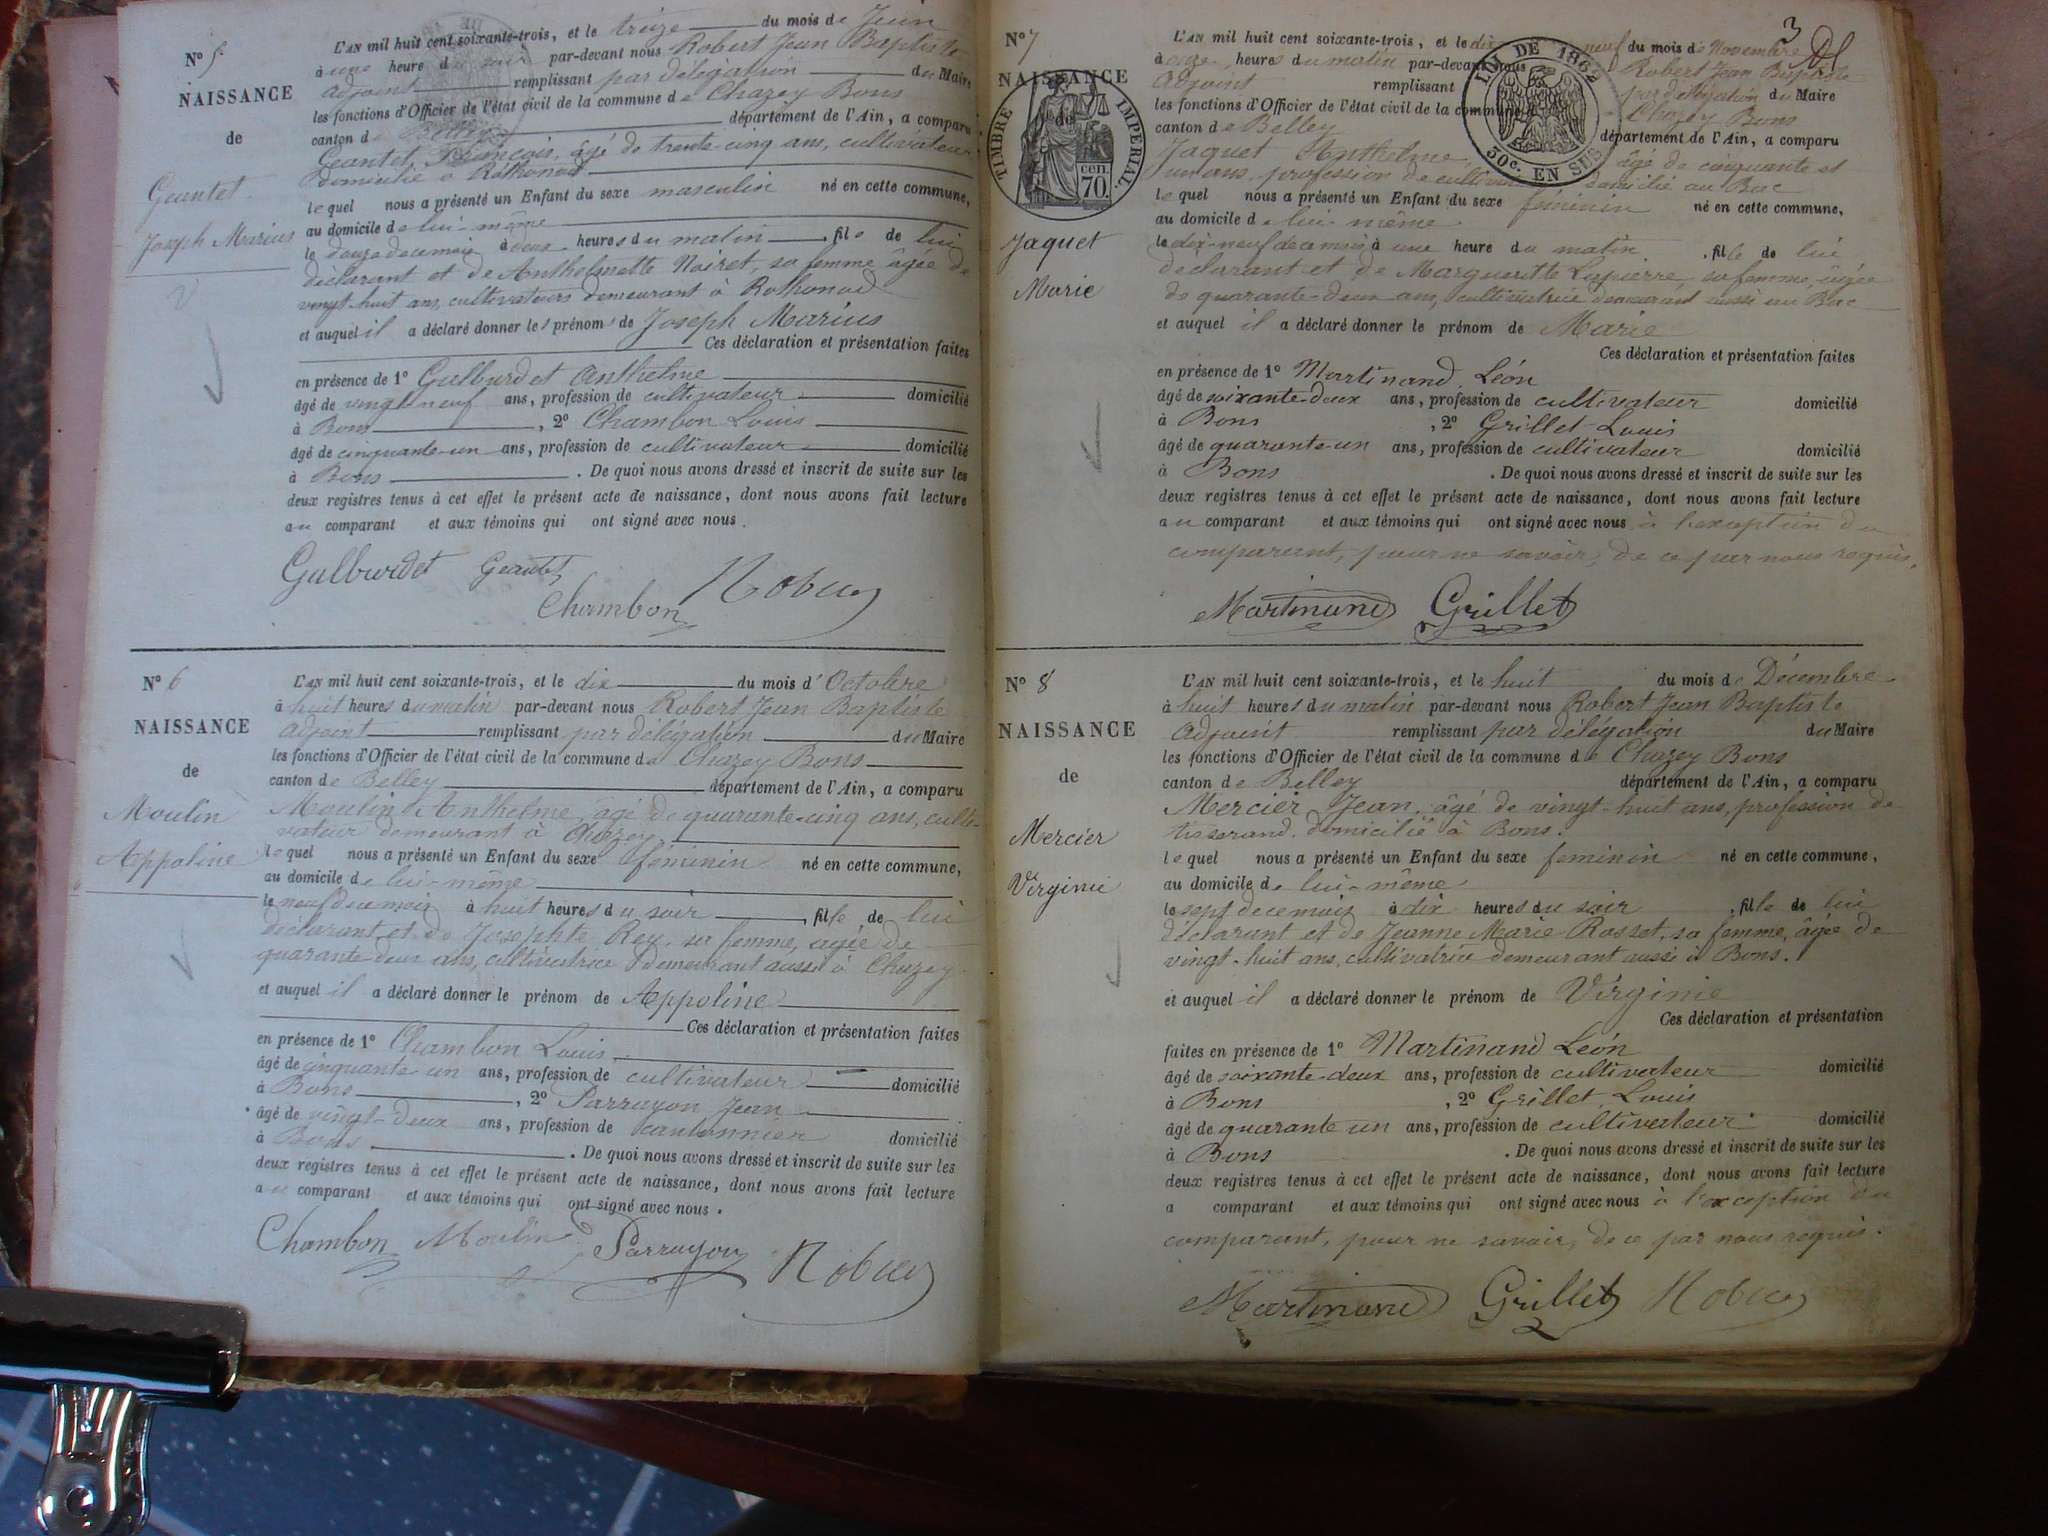 N° 5
NAISSANCE
de
Geantet
Joseph Marius
L'AN mil huit cent soixante-trois, et le treize du mois de Juin
à une heure du soir par-devant nous Robert Jean Baptiste
adjoint remplissant par délégation du Maire
les fonctions d'Officier de l'état civil de la commune de Chazey Bons
canton de Belley département de l'Ain, a comparu
Geantet François, âgé de trente-cinq ans, cultivateur
domicilié à Rothonod
lequel nous a présenté un Enfant du sexe masculin né en cette commune,
au domicile de lui-même
le douze du ce mois à heures du matin fils de lui
déclarant et de Anthelmette Noiret, sa femme âgée de
vingt-huit ans, cultivateurs demeurant à Rothonod
et auquel il a déclaré donner les prénoms de Joseph Marius
Ces déclaration et présentation faites
en présence de 1° Gulburdet Anthelme
âgé de vingt-neuf ans, profession de cultivateur domicilié
à Bons, 2° Chambon Louis
âgé de cinquante-un ans, profession de cultivateur domicilié
à Bons. De quoi nous avons dressé et inscrit de suite sur les
deux registres tenus à cet effet le présent acte de naissance, dont nous avons fait lecture
au comparant et aux témoins qui ont signé avec nous.
Gulburdet Geantet
Chambon
N° 6
NAISSANCE
de
Moulin
Appoline
L'AN mil huit cent soixante-trois, et le dix du mois d'Octobre
à huit heures du matin par-devant nous Robert Jean Baptiste
adjoint remplissant par délégation du Maire
les fonctions d'Officier de l'état civil de la commune de Chazey Bons
canton de Belley département de l'Ain, a comparu
Moulin Anthelme, âgé de quarante-cinq ans, culti-
vateur demeurant à Chazey
lequel nous a présenté un Enfant du sexe féminin né en cette commune,
au domicile de lui-même
le neuf de ce mois à huit heures du soir, fille de lui
déclarant et de Josephte Rey, sa femme, âgée de
quarante deux ans, cultivatrice demeurant aussi à Chazey
et auquel il a déclaré donner le prénom de Appoline
Ces déclaration et présentation faites
en présence de 1° Chambon Louis
âgé de cinquante un ans, profession de cultivateur domicilié
à Bons, 2° Parrayon Jean
âgé de vingt-deux ans, profession de cantonnier domicilié
à Bons. De quoi nous avons dressé et inscrit de suite sur les
deux registres tenus à cet effet le présent acte de naissance, dont nous avons fait lecture
au comparant et aux témoins qui ont signé avec nous.
Chambon Moulin Parrayon
3
N° 7
NAISSANCE
de
TIMBRE IMPERIAL.
cen. 70.
LOI DE 1862
50c. EN SUS
Jaquet
Marie
L'AN mil huit cent soixante-trois, et le dix neuf du mois de Novembre
à onze heures du matin par-devant nous Robert Jean Baptiste
adjoint remplissant par délégation du Maire
les fonctions d'Officier de l'état civil de la commune Chazey Bons
canton de Belley département de l'Ain, a comparu
Jaquet Anthelme, âgé de cinquante et
un ans, profession de domicilié au Bac
lequel nous a présenté un Enfant du sexe féminin né en cette commune,
au domicile de lui-même
le dix-neuf de ce mois à une heure du matin, fille de lui
déclarant et de Margueritte Lapierre, sa femme, âgée
de quarante-deux ans, cultivatrice demeurant aussi au Bac
et auquel il a déclaré donner le prénom de Marie
Ces déclaration et présentation faites
en présence de 1° Martinand Léon
âgé de soixante-deux ans, profession de cultivateur domicilié
à Bons, 2° Grillet Louis
âgé de quarante-un ans, profession de cultivateur domicilié
à Bons. De quoi nous avons dressé et inscrit de suite sur les
deux registres tenus à cet effet le présent acte de naissance, dont nous avons fait lecture
au comparant et aux témoins qui ont signé avec nous à l'exception du
comparant, pour ne savoir, de ce par nous requis.
Martinand Grillet
N° 8
NAISSANCE
de
Mercier
Virginie
L'AN mil huit cent soixante-trois, et le huit du mois de Décembre
à huit heures du matin par-devant nous Robert Jean Baptiste
adjoint remplissant par délégation du Maire
les fonctions d'Officier de l'état civil de la commune de Chazey Bons
canton de Belley département de l'Ain, a comparu
Mercier Jean, âgé de vingt-huit ans, profession de
tisserand, domicilié à Bons.
lequel nous a présenté un Enfant du sexe feminin né en cette commune,
au domicile de lui-même
le sept de ce mois à dix heures du soir, fille de lui
déclarant et de Jeanne Marie Rosset, sa femme, âgée de
vingt-huit ans, cultivatrice demeurant aussi à Bons.
et auquel il a déclaré donner le prénom de Virginie
Ces déclaration et présentation
faites en présence de 1° Martinand Léon
âgé de soixante-deux ans, profession de cultivateur domicilié
à Bons, 2° Grillet Louis
âgé de quarante un ans, profession de cultivateur domicilié
à Bons. De quoi nous avons dressé et inscrit de suite sur les
deux registres tenus à cet effet le présent acte de naissance, dont nous avons fait lecture
a comparant et aux témoins qui ont signé avec nous à l'exception du
comparant, pour ne savoir, de ce par nous requis.
Martinand Grillet